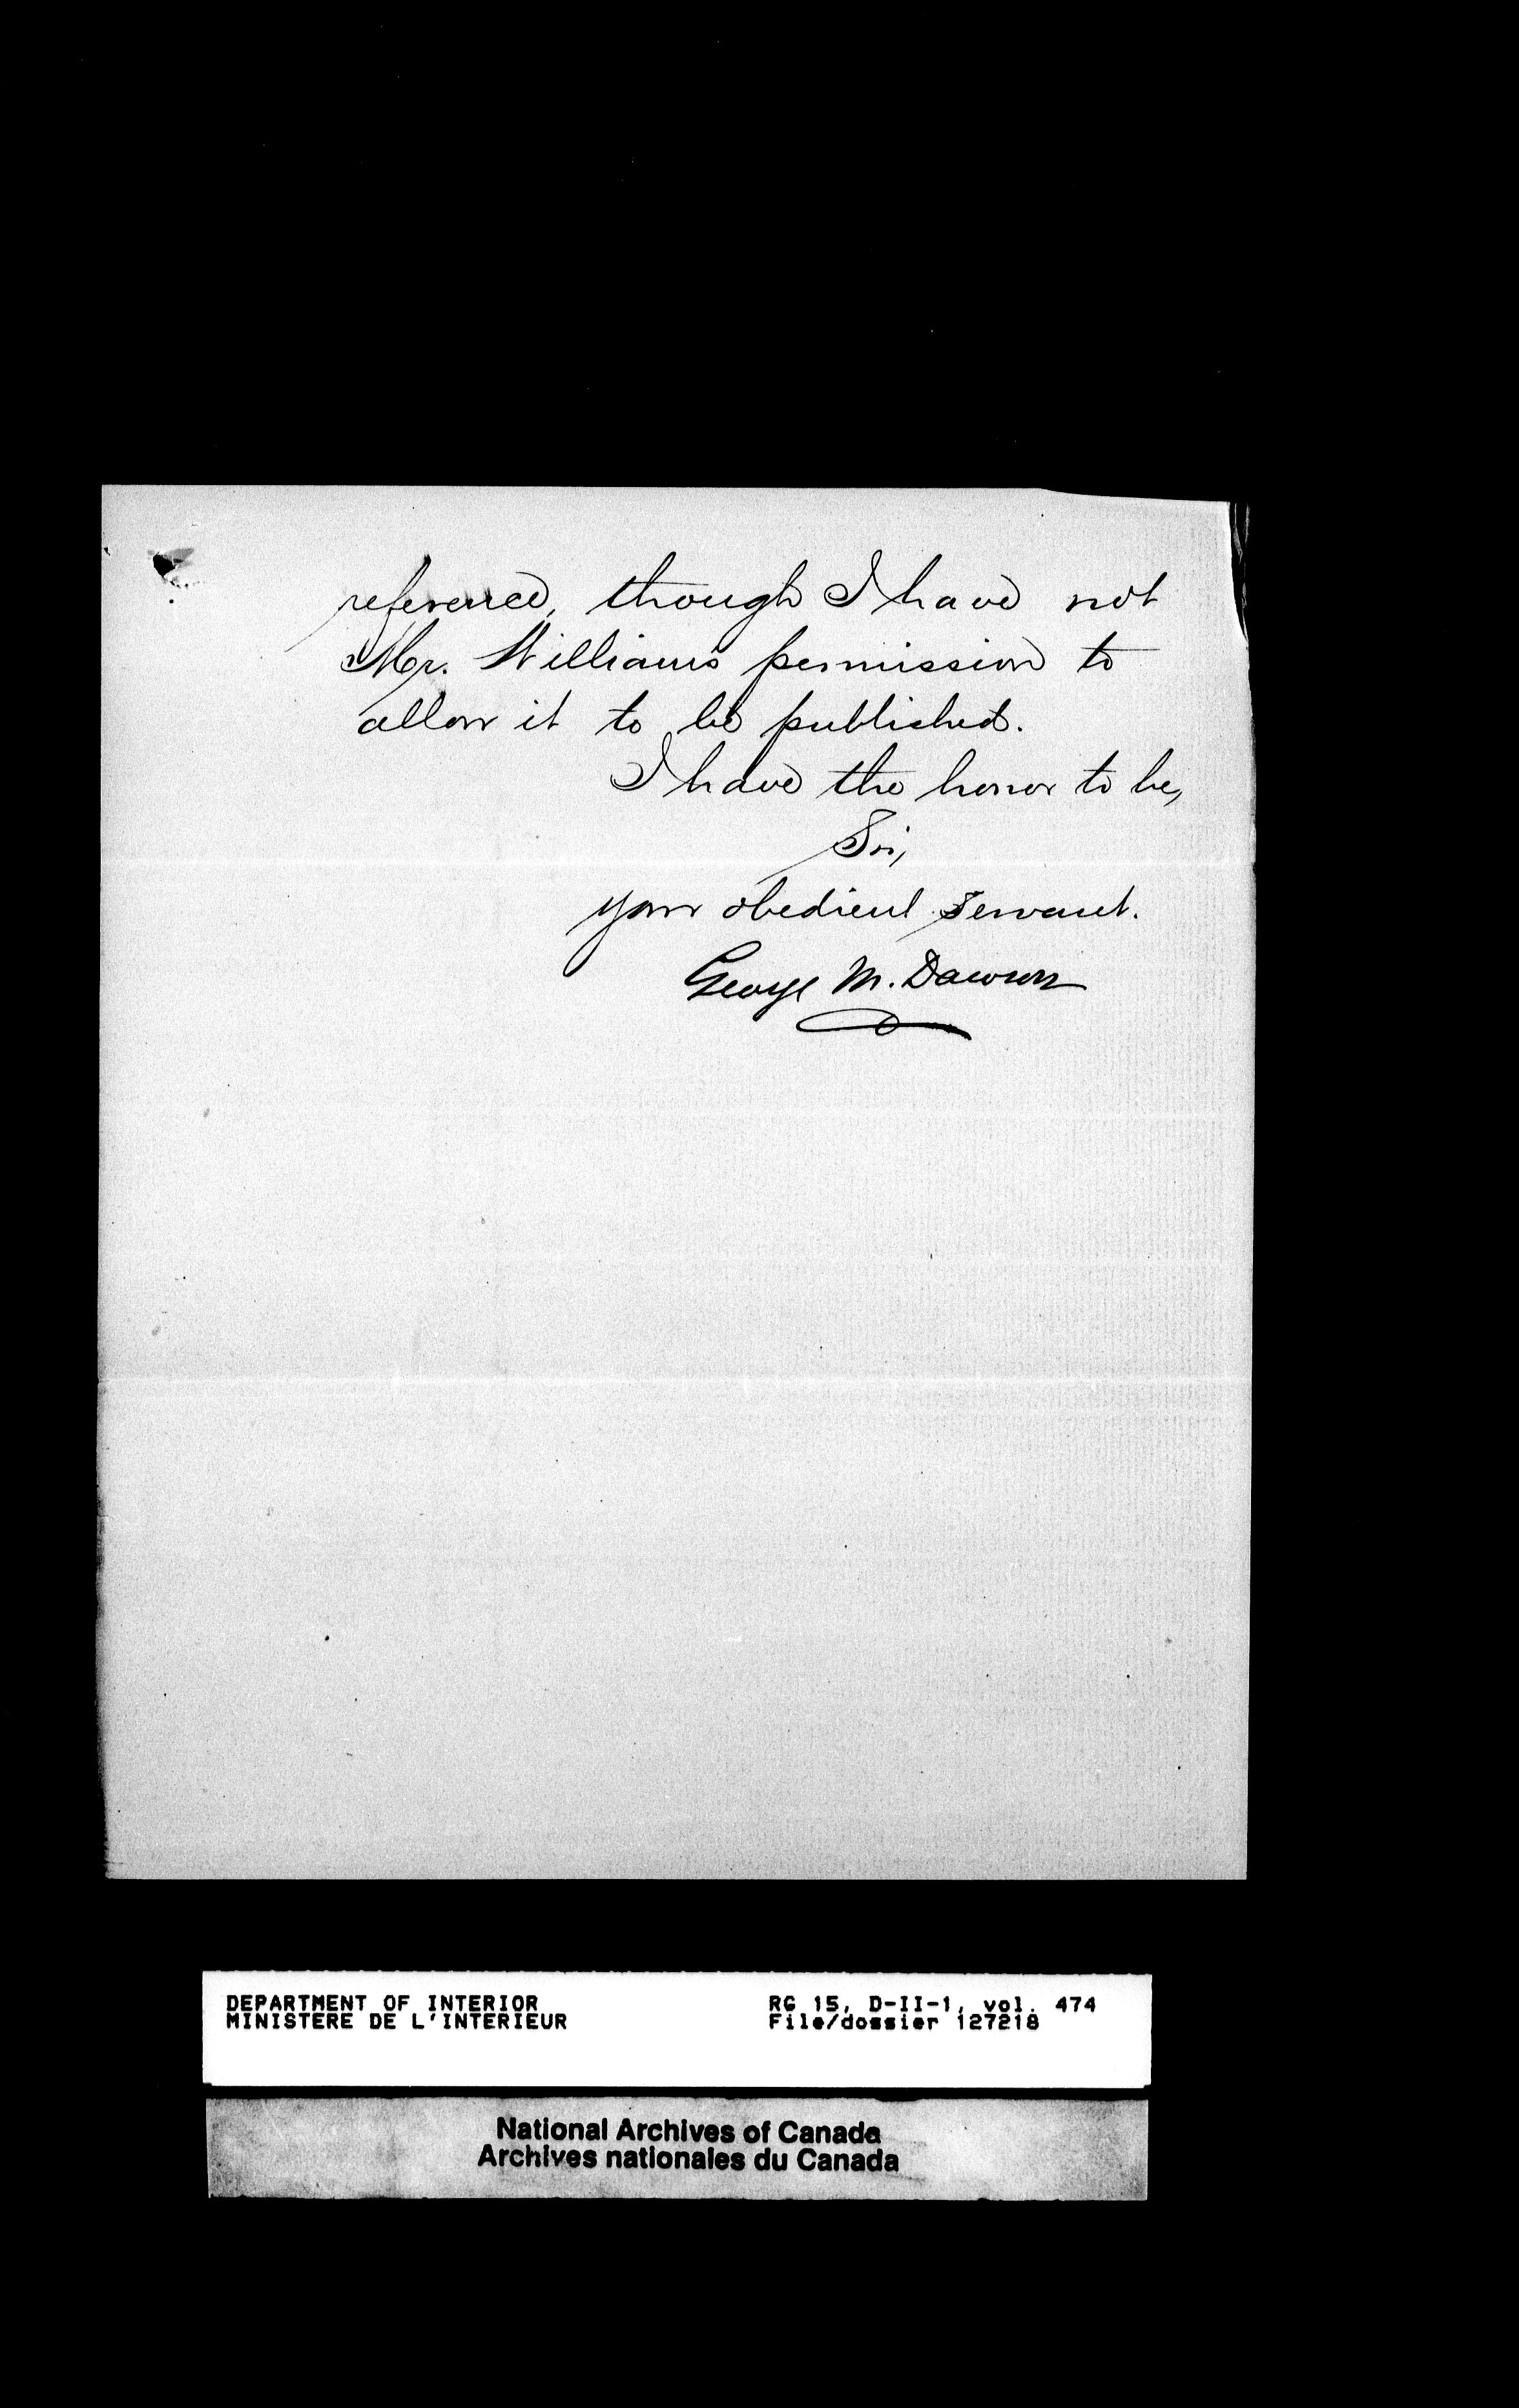 referred, though I have not
Mr. Williams permission to
allow it to be published.
I have the honor to be,
Sir,
your obedient Servant.
George M. Dawson
DEPARTMENT OF INTERIOR
MINISTERE DE L'INTERIEUR
RG 15, D-II-1, vol. 474
File/dossier 127218
National Archives of Canada
Archives nationales du Canada